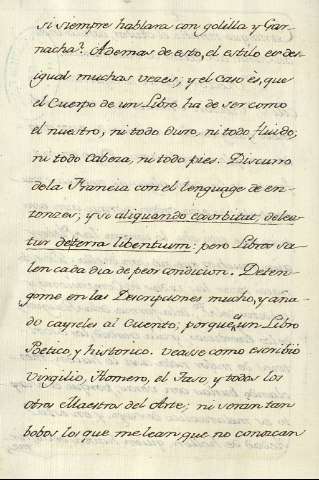 si siempre hablara con golilla y Gar-
nacha? Ademas de esto, el estilo es des-
igual muchas vezes; y el caso ès, que
el Cuerpo de un Libro ha de ser como
el nuestro, ni todo duro, ni todo fluido;
ni todo Cabeza, ni todo pies. Discurro
de la Francia con el lenguage de en-
tonzes; y si aliquando exorbitat, delea-
tur de terra libentium: pero Libros sa-
len cada dia de peor condicion. Deten-
gome en las Descripciones mucho, y aña-
do cayreles al Cuento; porque es un Libro
Poetico, y historico. vease como escribió
Virgilio, Homero, el Taso, y todos los
otros Maestros del Arte; ni seran tan
bobos los que me lean, que no conozcan